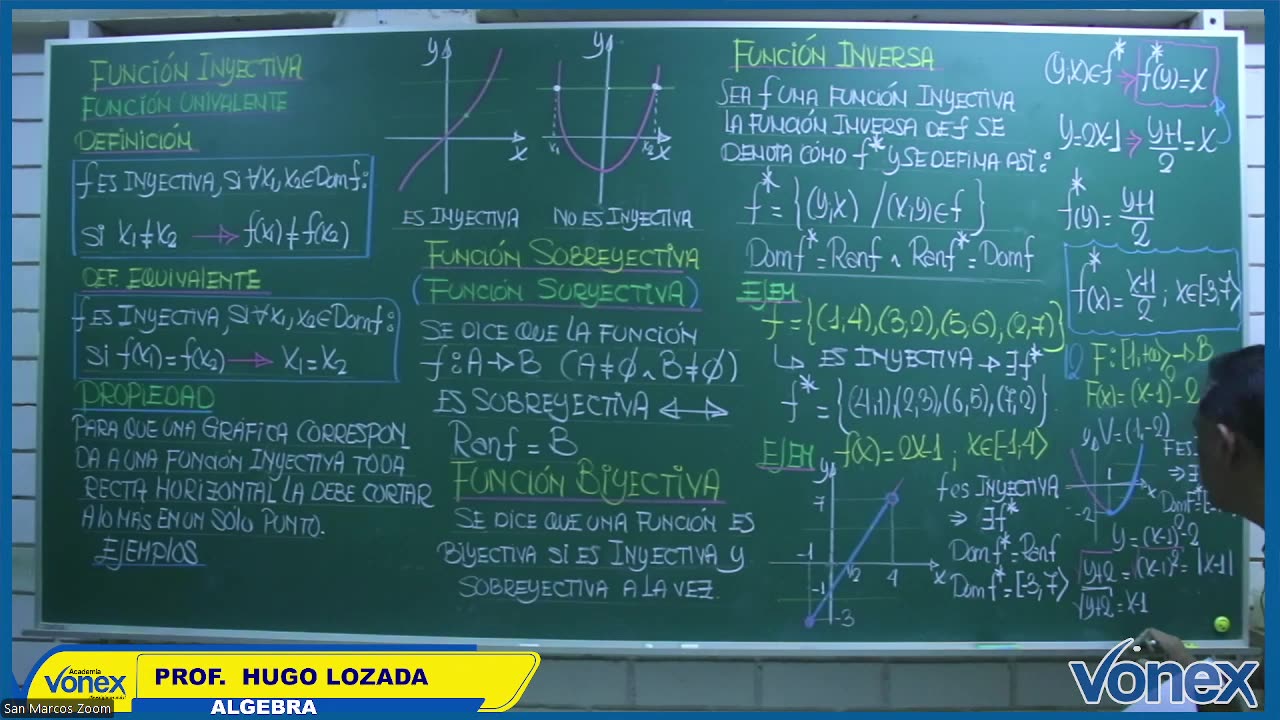 FUNCIÓN INYECTIVA
FUNCIÓN UNIVALENTE
DEFINICIÓN
f ES INYECTIVA, SI ∀ x₁, x₂ ∈ Dom f:
si x₁ ≠ x₂ → f(x₁) ≠ f(x₂)
DEF. EQUIVALENTE
f ES INYECTIVA, SI ∀ x₁, x₂ ∈ Dom f:
si f(x₁) = f(x₂) → x₁ = x₂
PROPIEDAD
PARA QUE UNA GRÁFICA CORRESPON_
DA A UNA FUNCIÓN INYECTIVA TODA
RECTA HORIZONTAL LA DEBE CORTAR
A lO MÁS EN UN SÓLO PUNTO.
EJEMPLOS
y
x
ES INYECTIVA
y
x₁
x₂
x
NO ES INYECTIVA
FUNCIÓN SOBREYECTIVA
(FUNCIÓN SURYECTIVA)
SE DICE QUE LA FUNCIÓN
f: A → B (A ≠ ∅ ∧ B ≠ ∅)
ES SOBREYECTIVA ↔
Ran f = B
FUNCIÓN BIYECTIVA
SE DICE QUE UNA FUNCIÓN ES
BIYECTIVA SI ES INYECTIVA Y
SOBREYECTIVA A LA VEZ.
FUNCIÓN INVERSA
SEA f UNA FUNCIÓN INYECTIVA
LA FUNCIÓN INVERSA DE f SE
DENOTA CÓMO f* Y SE DEFINA ASÍ:
f* = {(y;x) / (x;y) ∈ f}
Dom f* = Ran f ∧ Ran f* = Dom f
EJEM
f = {(1,4),(3,2),(5,6),(2,7)}
↳ ES INYECTIVA → ∃ f*
f* = {(4,1),(2,3),(6,5),(7,2)}
EJEM f(x) = 2x-1; x ∈ [-1,4⟩
y
7
-1
-1
1/2
4
x
-3
f es INYECTIVA
⇒ ∃ f*
Dom f* = Ran f
Dom f* = [-3,7⟩
(y;x) ∈ f* → f*(y) = x
y = 2x-1 → (y+1)/2 = x
f*(y) = (y+1)/2
f*(x) = (x+1)/2 ; x ∈ [-3,7⟩
F: [1,+∞⟩ → B
F(x) = (x-1)² - 2
y
V = (1,-2)
1
x
-2
F ES
⇒ ∃
Dom F* = [-2
y = (x-1)² - 2
√(y+2) = √(x-1)² = |x-1|
√(y+2) = x-1
Academia
vonex
PROF. HUGO LOZADA
ALGEBRA
San Marcos Zoom
vonex